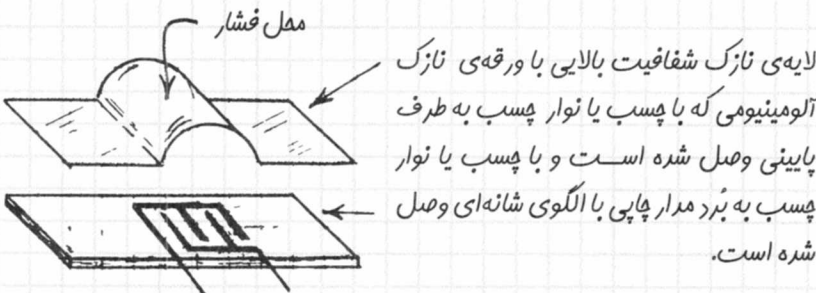 محل فشار
لایه‌ی نازک شفافیت بالایی با ورقه‌ی نازک
آلومینیومی که با چسب یا نوار چسب به طرف
پایینی وصل شده است و با چسب یا نوار
چسب به بُرد مدار چاپی با الگوی شانه‌ای وصل
شده است.